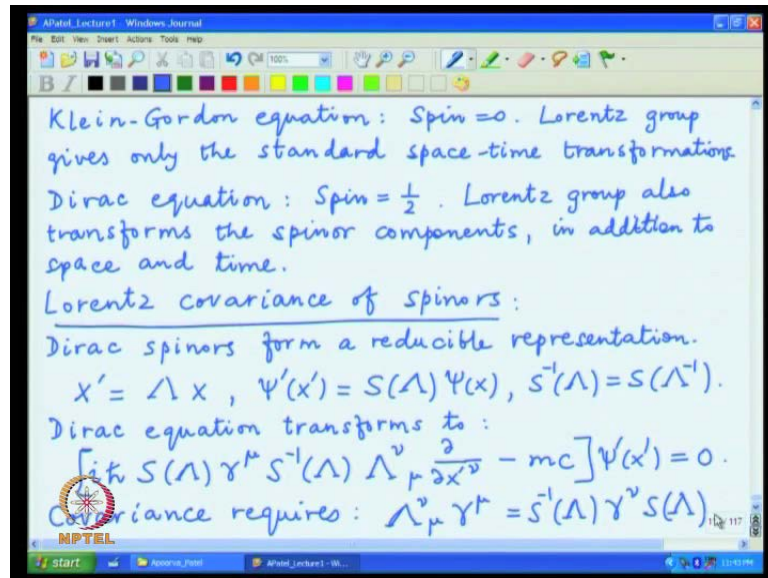 APatel_Lecture1 - Windows Journal
File Edit View Insert Actions Tools Help
100%
B I
Klein-Gordon equation: Spin=0. Lorentz group
gives only the standard space-time transformations
Dirac equation: Spin = 1/2. Lorentz group also
transforms the spinor components, in addition to
space and time.
Lorentz covariance of spinors:
Dirac spinors form a reducible representation.
x' = Λx, ψ'(x') = S(Λ) ψ(x), S⁻¹(Λ) = S(Λ⁻¹).
Dirac equation transforms to:
[iħ S(Λ) γ^μ S⁻¹(Λ) Λ^ν_μ ∂/∂x'^ν - mc] ψ'(x') = 0.
Covariance requires: Λ^ν_μ γ^μ = S⁻¹(Λ) γ^ν S(Λ)
NPTEL
start Apoorva_Patel APatel_Lecture1 - Wi... 11:43 PM